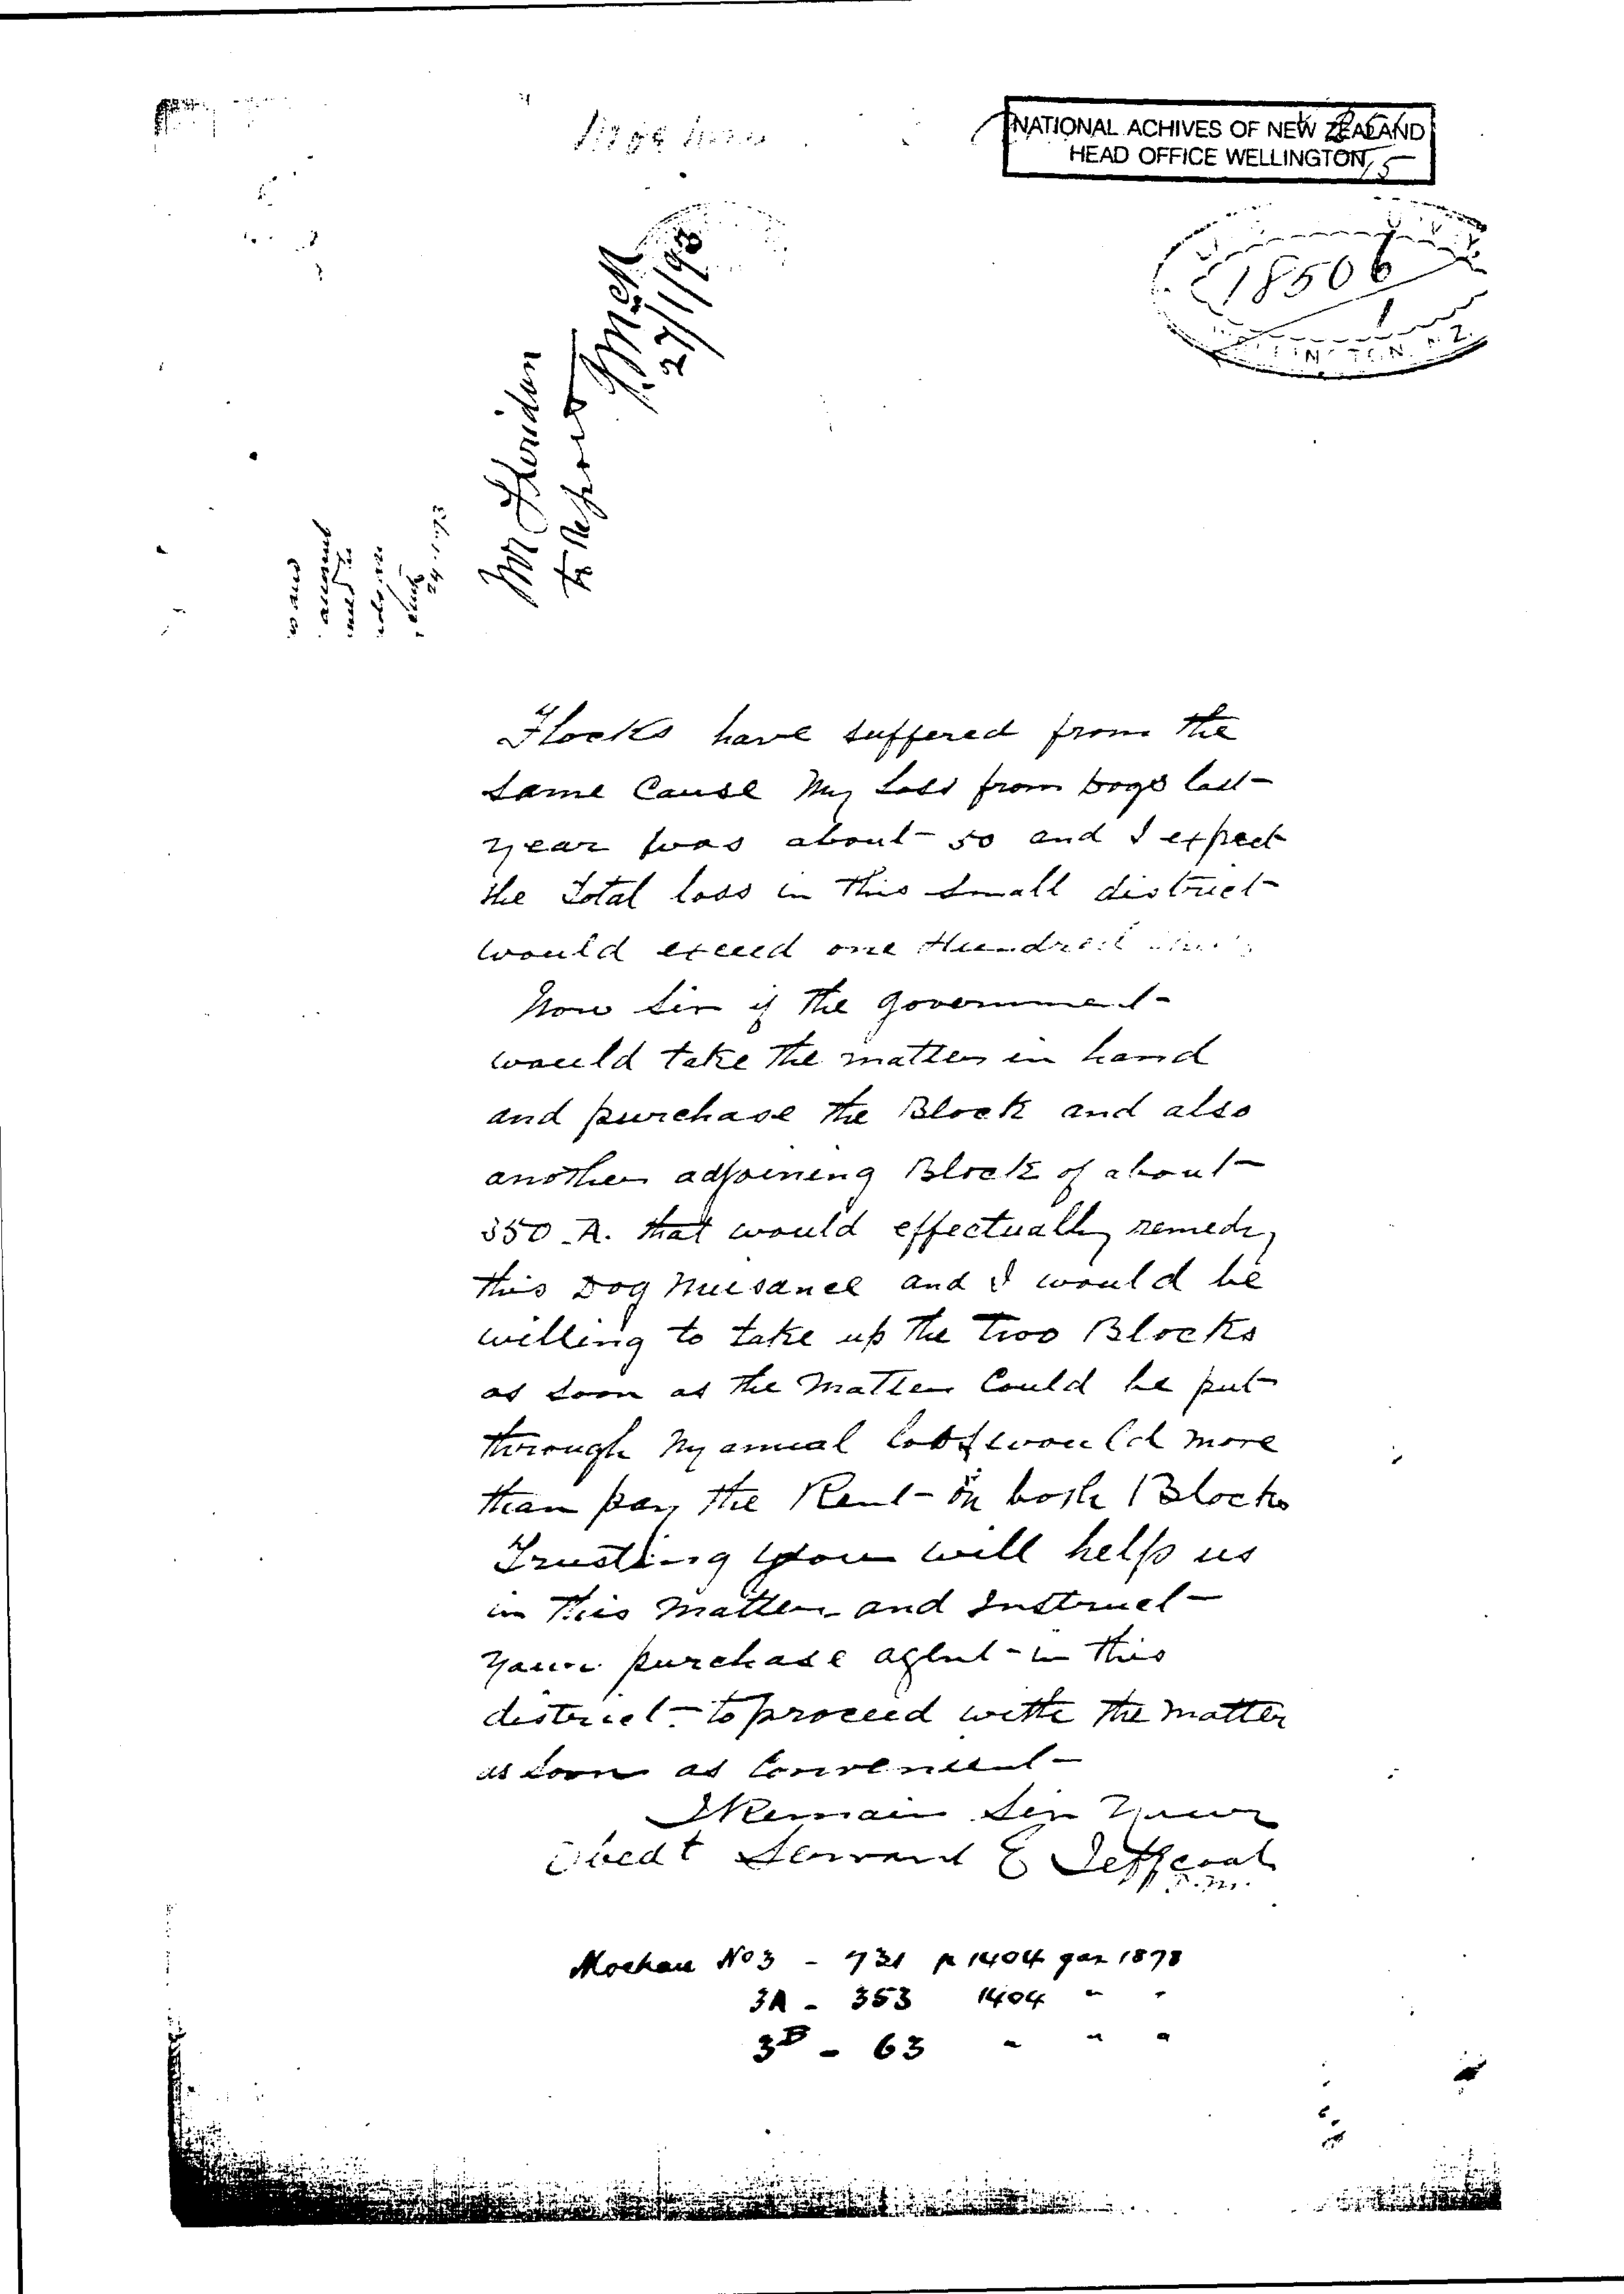 NATIONAL ACHIVES OF NEW ZEALAND
HEAD OFFICE WELLINGTON
18506
1
Mr Sheridan
to report
27/1/93
Flocks have suffered from the
same Cause My Loss from Dogs last
year was about 50 and I expect
the Total loss in this small district
would exceed one Hundred
Now Sir if the government
would take the matter in hand
and purchase the Block and also
another adjoining Block of about
350 A. that would effectually remedy
this Dog Nuisance and I would be
willing to take up the Two Blocks
as soon as the Matter Could be put
through My annual loss would more
than pay the Rent on both Blocks
Trusting you will help us
in this Matter and Instruct
your purchase agent in this
district to proceed with the Matter
as soon as Convenient
I Remain Sir Your
Obedt Servant E Jeffcoat
Moehau No 3 - 731 p 1404 gaz 1878
3A - 353 1404 " "
3B - 63 " " "